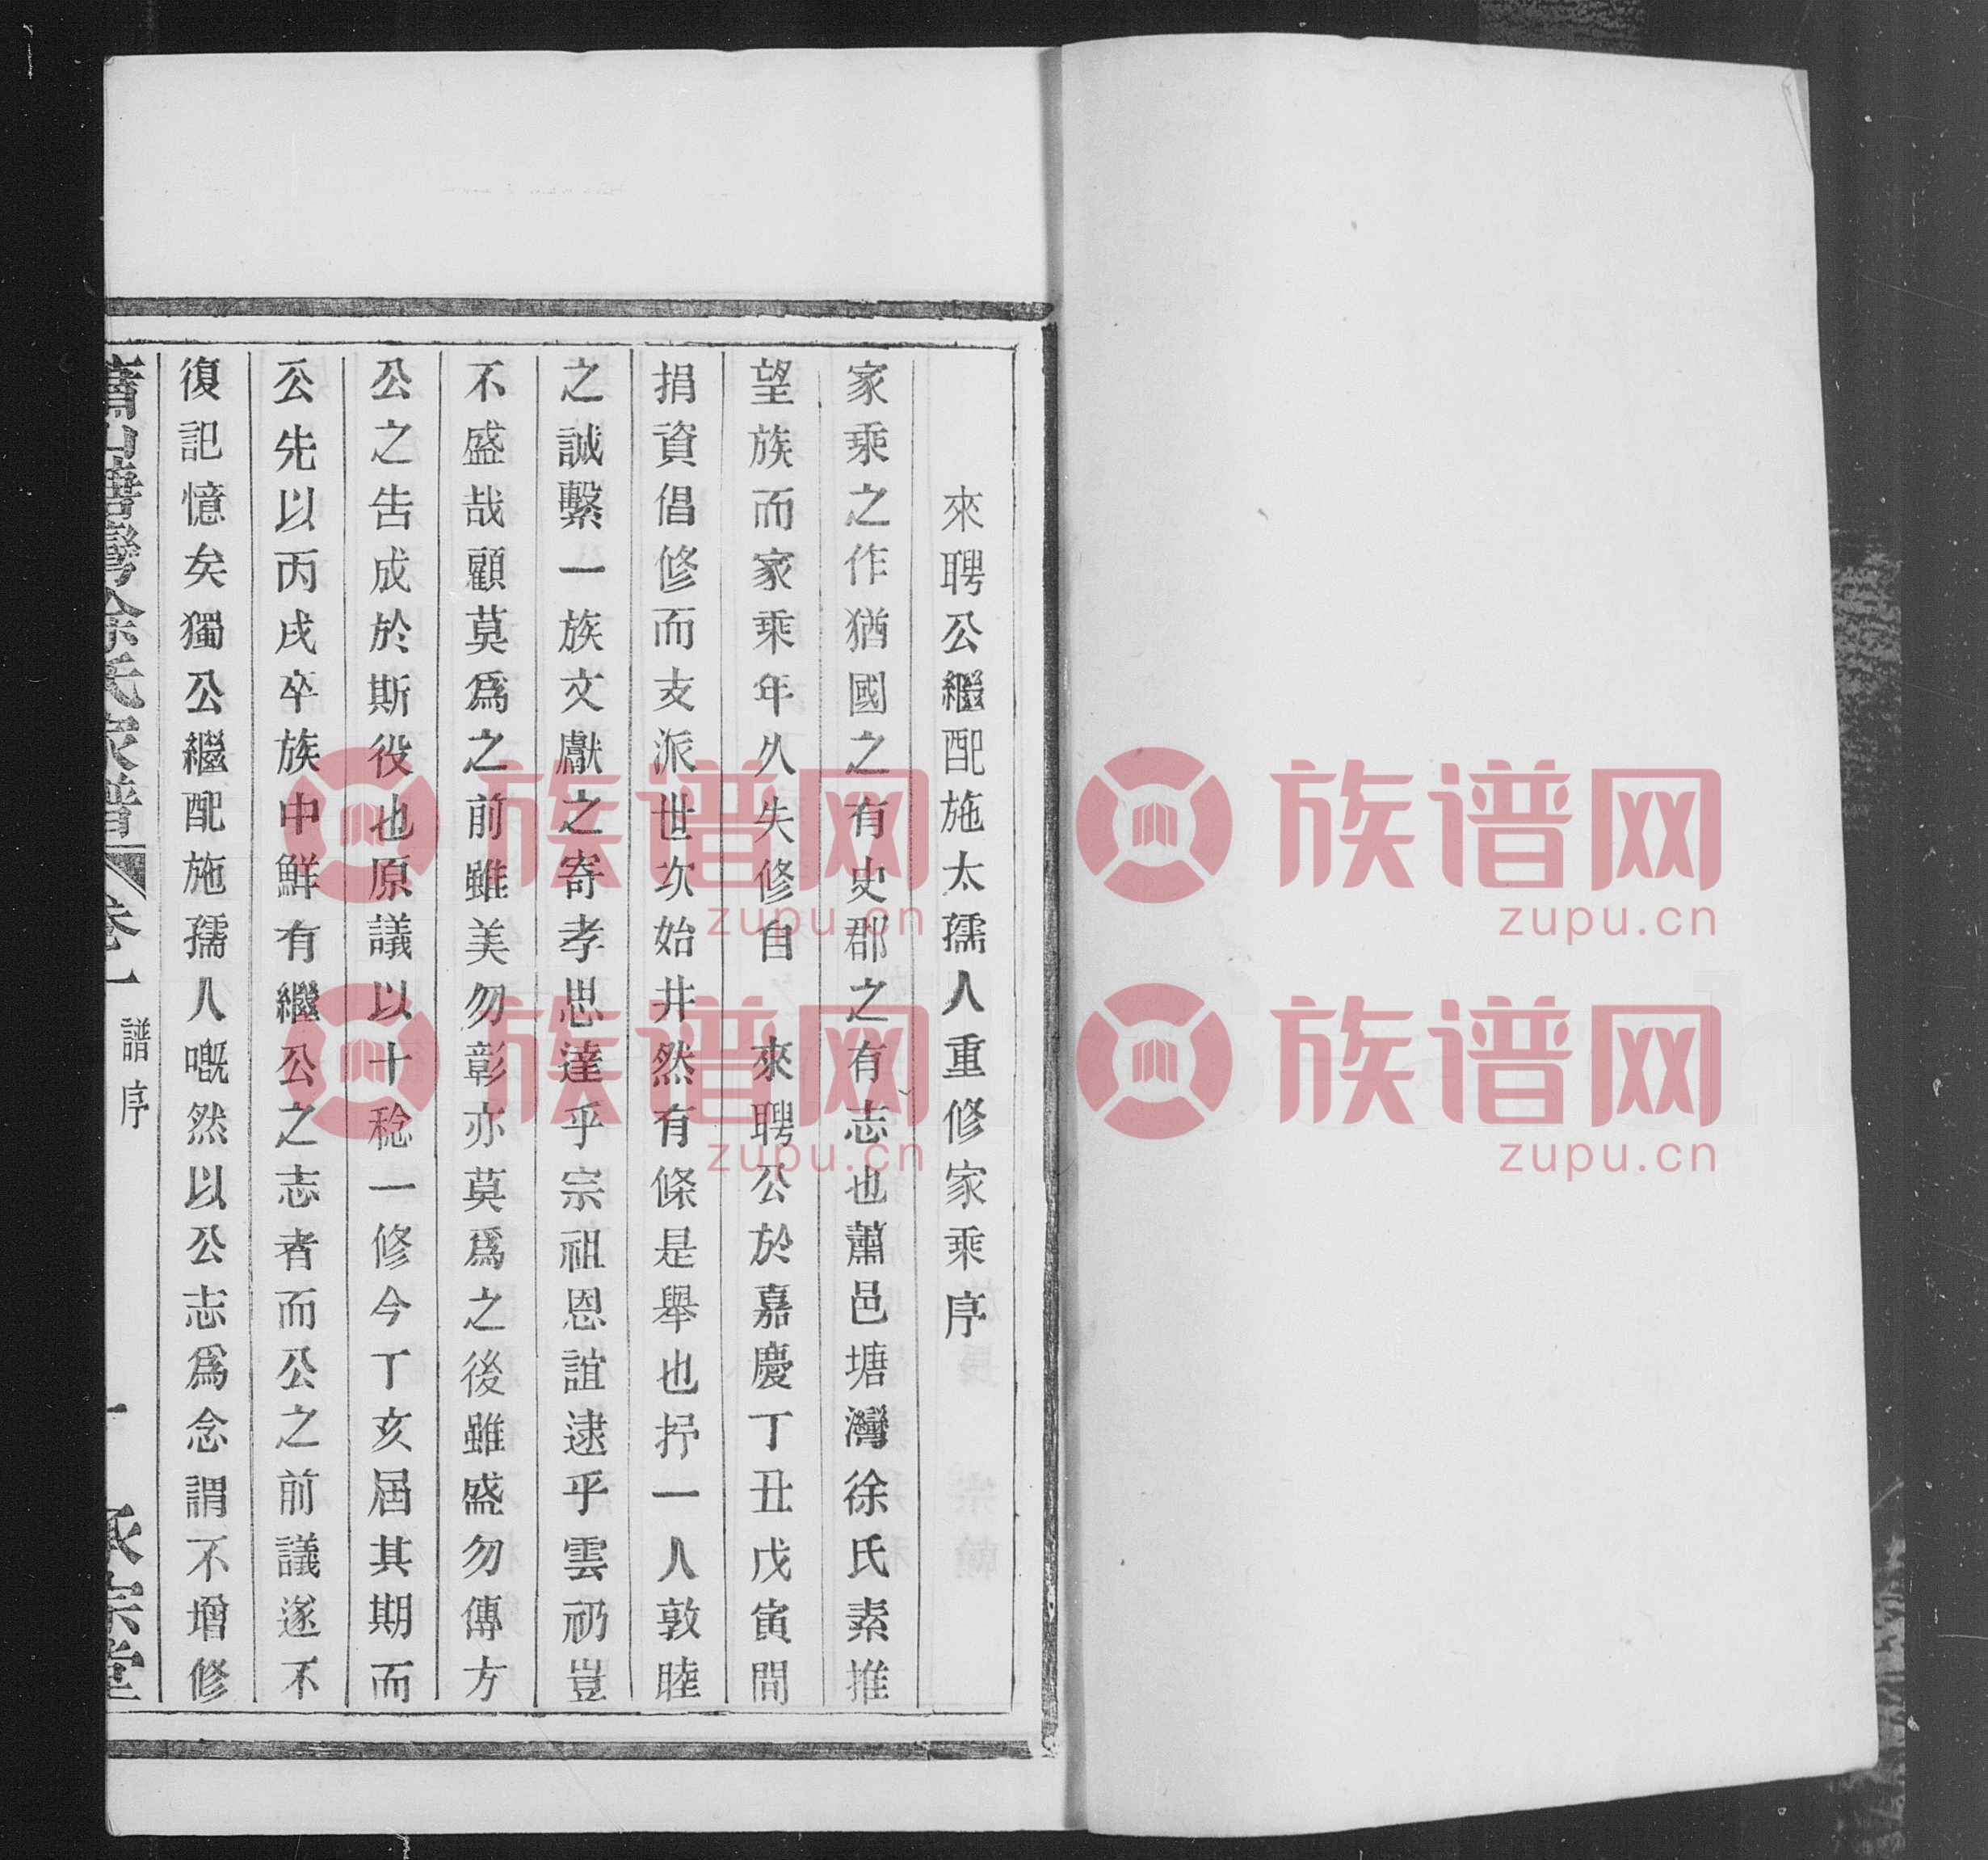 來聘公繼配施太孺人重修家乘序
家乘之作猶國之有史郡之有志也蕭邑塘灣徐氏素推
望族而家乘年久失修自　來聘公於嘉慶丁丑戊寅間
捐資倡修而支派世次始井然有條是舉也抒一人敦睦
之誠繫一族文獻之寄孝思達乎宗祖恩誼逮乎雲礽豈
不盛哉顧莫爲之前雖美勿彰亦莫爲之後雖盛勿傳方
公之告成於斯役也原議以十稔一修今丁亥屆其期而
公先以丙戌卒族中鮮有繼公之志者而公之前議遂不
復記憶矣獨公繼配施孺人嘅然以公志爲念謂不增修
蕭山塘灣徐氏家譜
卷一
譜序
一
承宗堂
族谱网
zupu.cn
族谱网
zupu.cn
族谱网
zupu.cn
族谱网
zupu.cn